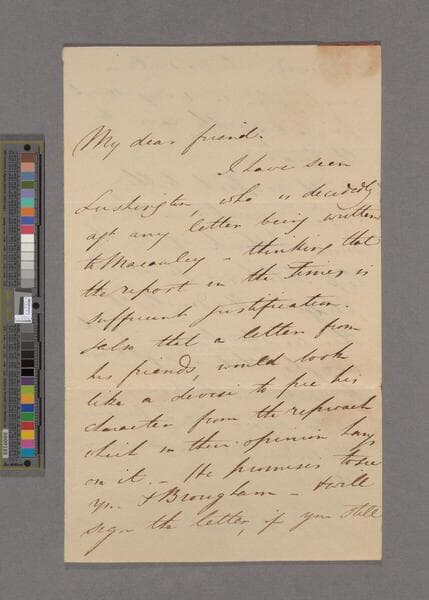 My dear friend.
I have seen
Lushington, who is decidedly
agt any letter being written
to Macauley - thinking that
the report in the Times is
sufficient justification.
& also that a letter from
his friends, would look
like a devise to free his
character from the reproach
which in their opinion hangs
on it. - He promises to see
you & Brougham - & will
sign the letter, if you still